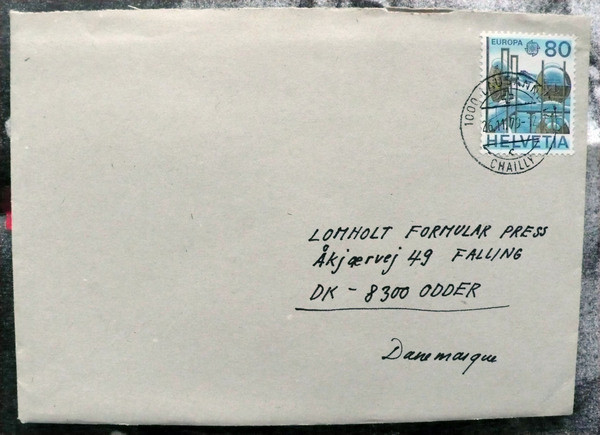 EUROPA 80
HELVETIA
1000 LAUSANNE
CHAILLY
LOMHOLT FORMULAR PRESS
Åkjærvej 49 FALLING
DK - 8300 ODDER
Danemarque